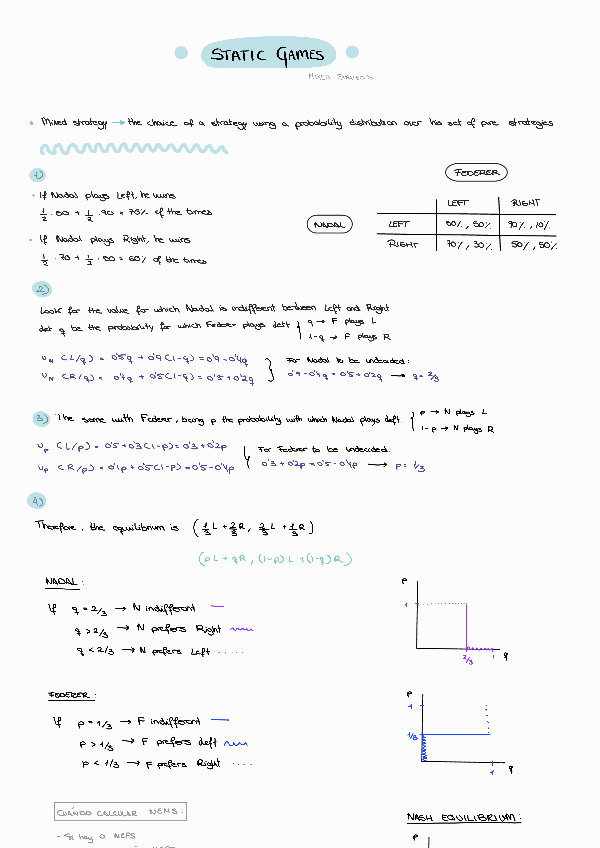 STATIC GAMES
MIXED STRATEGIES
• Mixed strategy → the choice of a strategy using a probability distribution over his set of pure strategies
1)
FEDERER
· If Nadal plays Left, he wins
1/2 · 50 + 1/2 · 90 = 70% of the times
· If Nadal plays Right, he wins
1/2 · 70 + 1/2 · 50 = 60% of the times
NADAL
LEFT RIGHT
LEFT 50%, 50% 90%, 10%
RIGHT 70%, 30% 50%, 50%
2)
Look for the value for which Nadal is indifferent between Left and Right
Let q be the probability for which Federer plays Left { q → F plays L
1-q → F plays R
U_N (L/q) = 0'5q + 0'9(1-q) = 0'9 - 0'4q
U_N (R/q) = 0'7q + 0'5(1-q) = 0'5 + 0'2q
For Nadal to be undecided:
0'9 - 0'4q = 0'5 + 0'2q → q = 2/3
3) The same with Federer, being p the probability with which Nadal plays Left. { p → N plays L
1-p → N plays R
U_F (L/p) = 0'5 + 0'3(1-p) = 0'3 + 0'2p
U_F (R/p) = 0'1p + 0'5(1-p) = 0'5 - 0'4p
For Federer to be undecided:
0'3 + 0'2p = 0'5 - 0'4p → p = 1/3
4)
Therefore, the equilibrium is (1/3 L + 2/3 R, 2/3 L + 1/3 R)
(pL + qR, (1-p)L + (1-q)R)
NADAL:
If q = 2/3 → N indifferent
q > 2/3 → N prefers Right
q < 2/3 → N prefers Left
p
1
2/3 1 q
FEDERER:
If p = 1/3 → F indifferent
p > 1/3 → F prefers Left
p < 1/3 → F prefers Right
p
1
1/3
1 q
CUÁNDO CALCULAR NEMS:
- Si hay 0 NEPS
NASH EQUILIBRIUM:
P